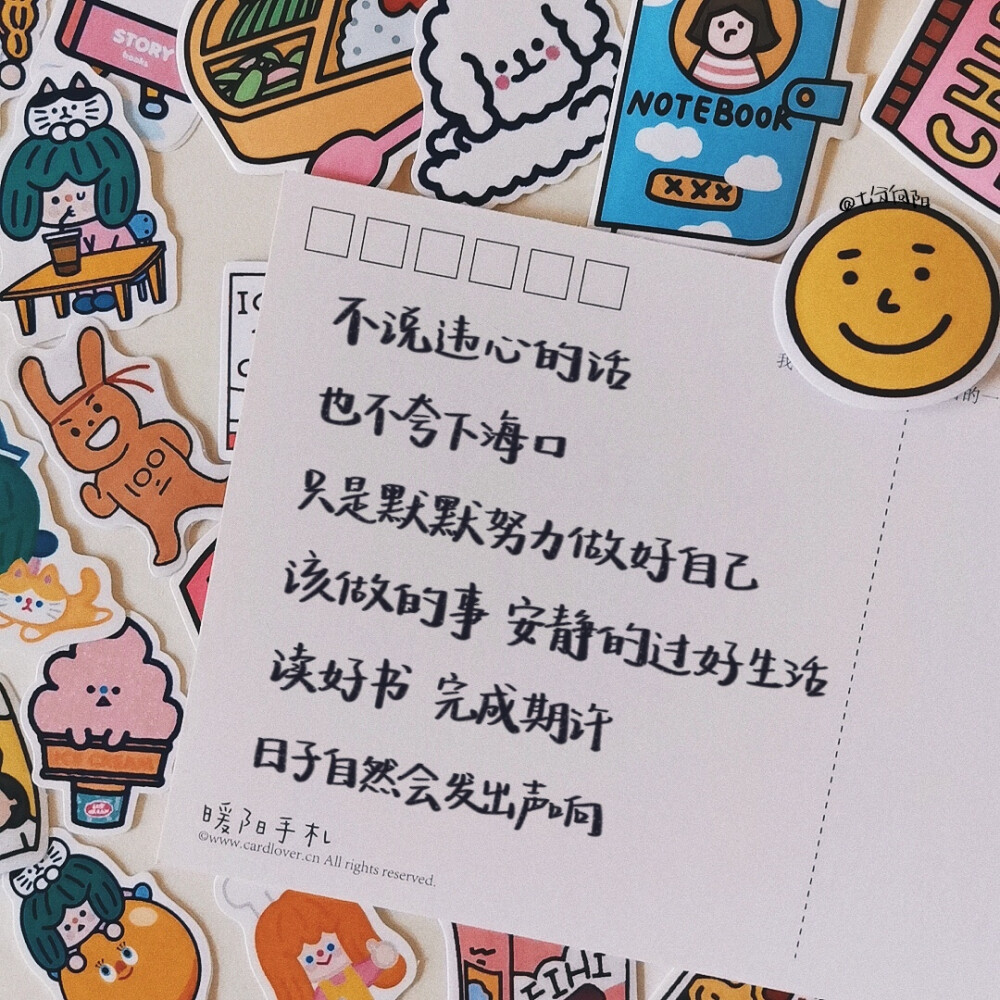 STORY
books
NOTEBOOK
XXX
@七分向阳
CHI
我
的一
不说违心的话
也不夸下海口
只是默默努力做好自己
该做的事 安静的过好生活
读好书 完成期许
日子自然会发出声响
暖阳手札
©www.cardlover.cn All rights reserved.
ICE CREAM